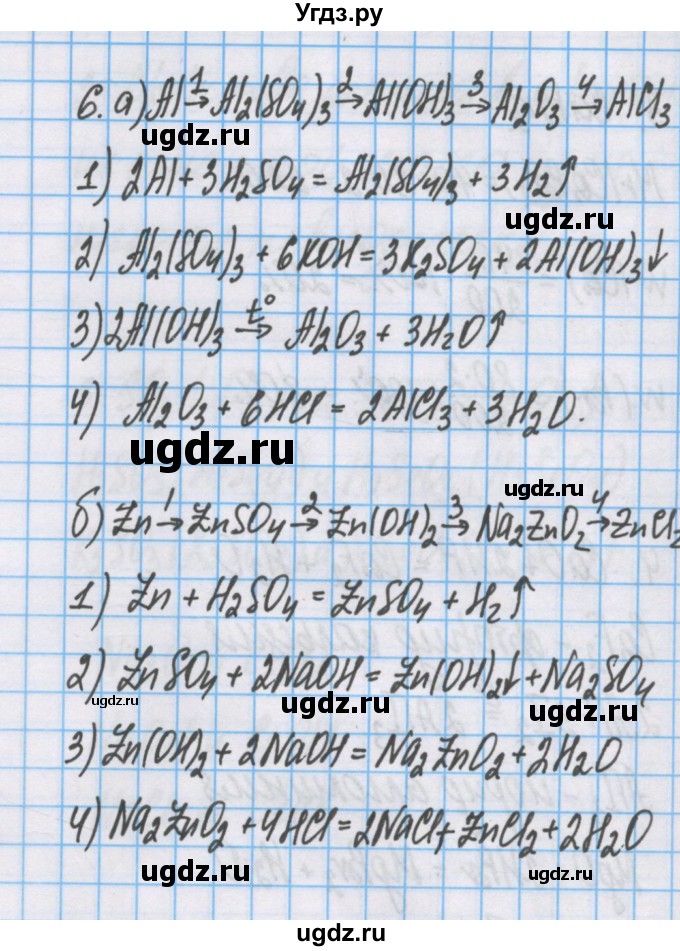 Угдз.ру
6. а) Al →¹ Al₂(SO₄)₃ →² Al(OH)₃ →³ Al₂O₃ →⁴ AlCl₃
ugdz.ru
1) 2Al + 3H₂SO₄ = Al₂(SO₄)₃ + 3H₂↑
ugdz.ru
2) Al₂(SO₄)₃ + 6KOH = 3K₂SO₄ + 2Al(OH)₃↓
3) 2Al(OH)₃ →t° Al₂O₃ + 3H₂O↑
4) Al₂O₃ + 6HCl = 2AlCl₃ + 3H₂O.
ugdz.ru
ugdz.ru
б) Zn →¹ ZnSO₄ →² Zn(OH)₂ →³ Na₂ZnO₂ →⁴ ZnCl₂
1) Zn + H₂SO₄ = ZnSO₄ + H₂↑
ugdz.ru
2) ZnSO₄ + 2NaOH = Zn(OH)₂↓ + Na₂SO₄
ugdz.ru
ugdz.ru
ugdz.ru
3) Zn(OH)₂ + 2NaOH = Na₂ZnO₂ + 2H₂O
4) Na₂ZnO₂ + 4HCl = 2NaCl + ZnCl₂ + 2H₂O
ugdz.ru
ugdz.ru
ugdz.ru